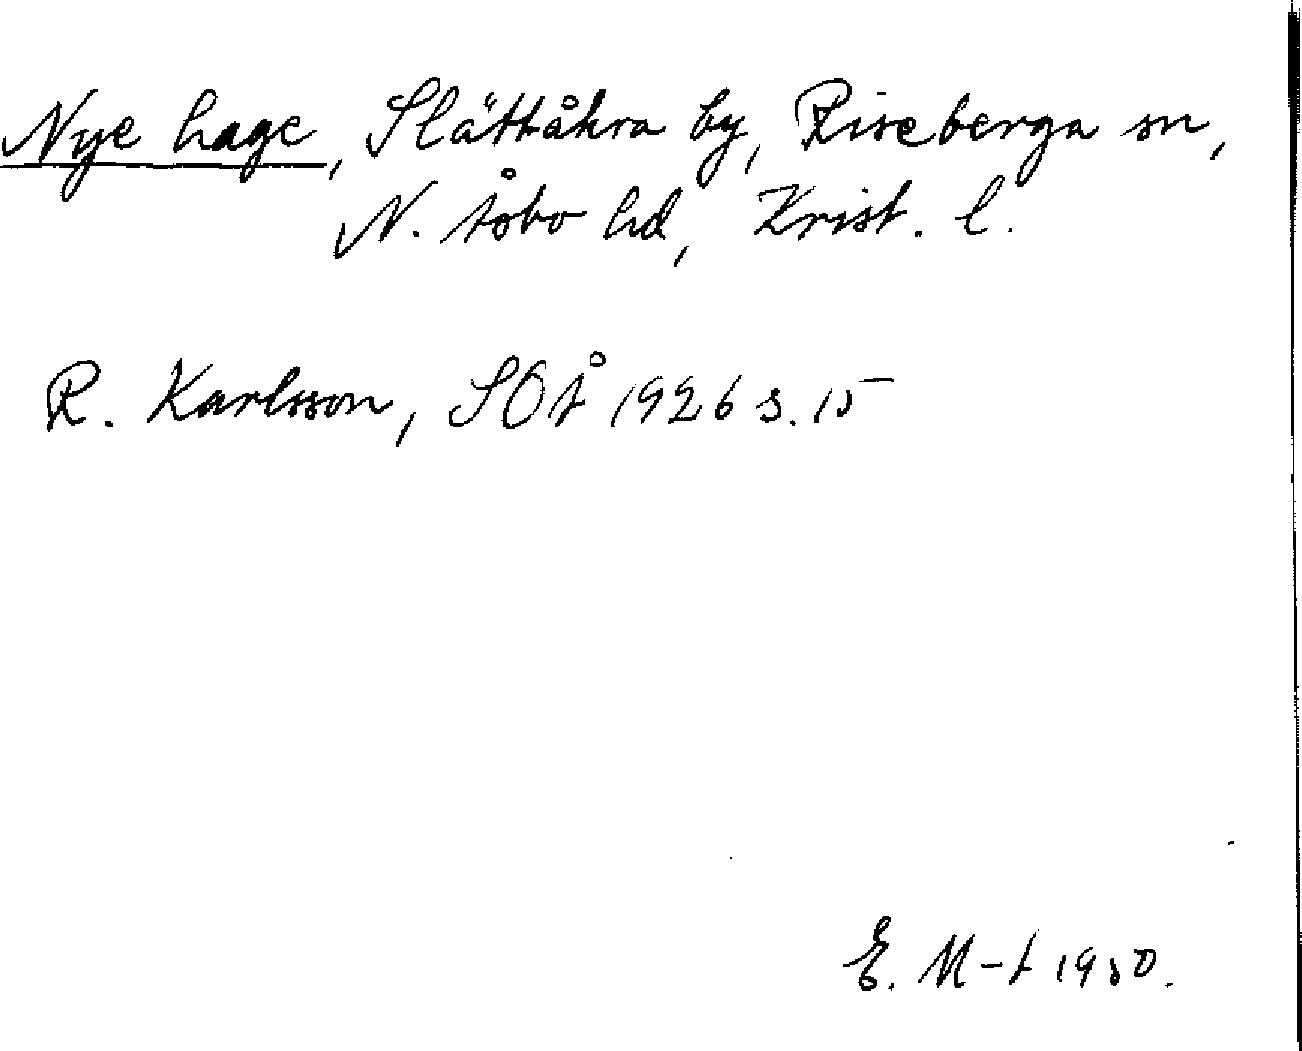 Nye hage, Slättåkra by, Riseberga sn,
N. Åsbo hd, Krist. l.
R. Karlsson, SOÅ 1926 s. 15
E. M-t 1950.